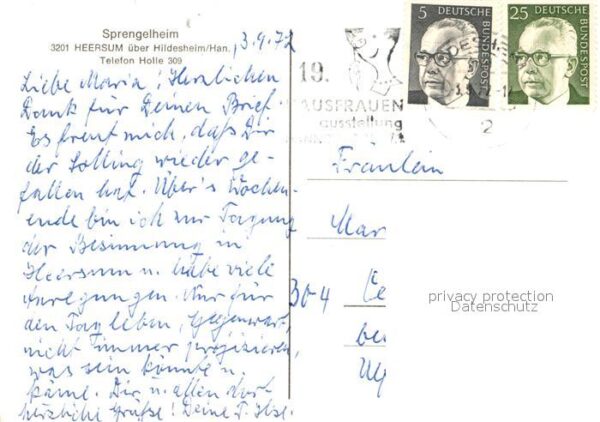 Sprengelheim
3201 HEERSUM über Hildesheim/Han.
Telefon Holle 309
3.9.72
Liebe Maria! Herzlichen
Dank für Deinen Brief.
Es freut mich, daß Dir
der Solling wieder ge-
fallen hat. Über's Wochen-
ende bin ich zur Tagung
der Besinnung in
Heersum u. habe viele
Anregungen. Nur für
den Tag leben, Gegenwart,
nicht immer projizieren,
was sein könnte u.
käme. Dir u. allen dort
herzliche Grüße! Deine T. Ilse.
5
DEUTSCHE
BUNDESPOST
25
DEUTSCHE
BUNDESPOST
19.
HAUSFRAUEN
ausstellung
2
Fräulein
Mar
304
privacy protection
Datenschutz